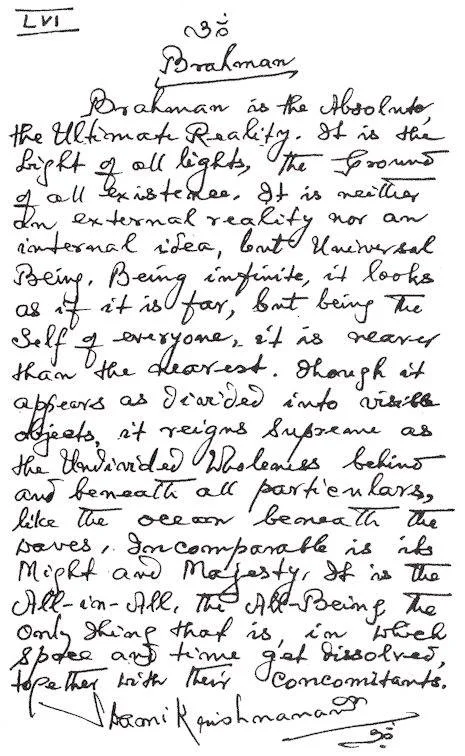 LVI
ॐ
Brahman
Brahman is the Absolute,
the Ultimate Reality. It is the
Light of all lights, the Ground
of all existence. It is neither
an external reality nor an
internal idea, but Universal
Being. Being infinite, it looks
as if it is far, but being the
Self of everyone, it is nearer
than the nearest. Though it
appears as divided into visible
objects, it reigns Supreme as
the Undivided Wholeness behind
and beneath all particulars,
like the ocean beneath the
waves. Incomparable is its
Might and Majesty. It is the
All-in-All, the All-Being, the
Only thing that is, in which
space and time get dissolved,
together with their concomitants.
Swami Krishnananda
ॐ